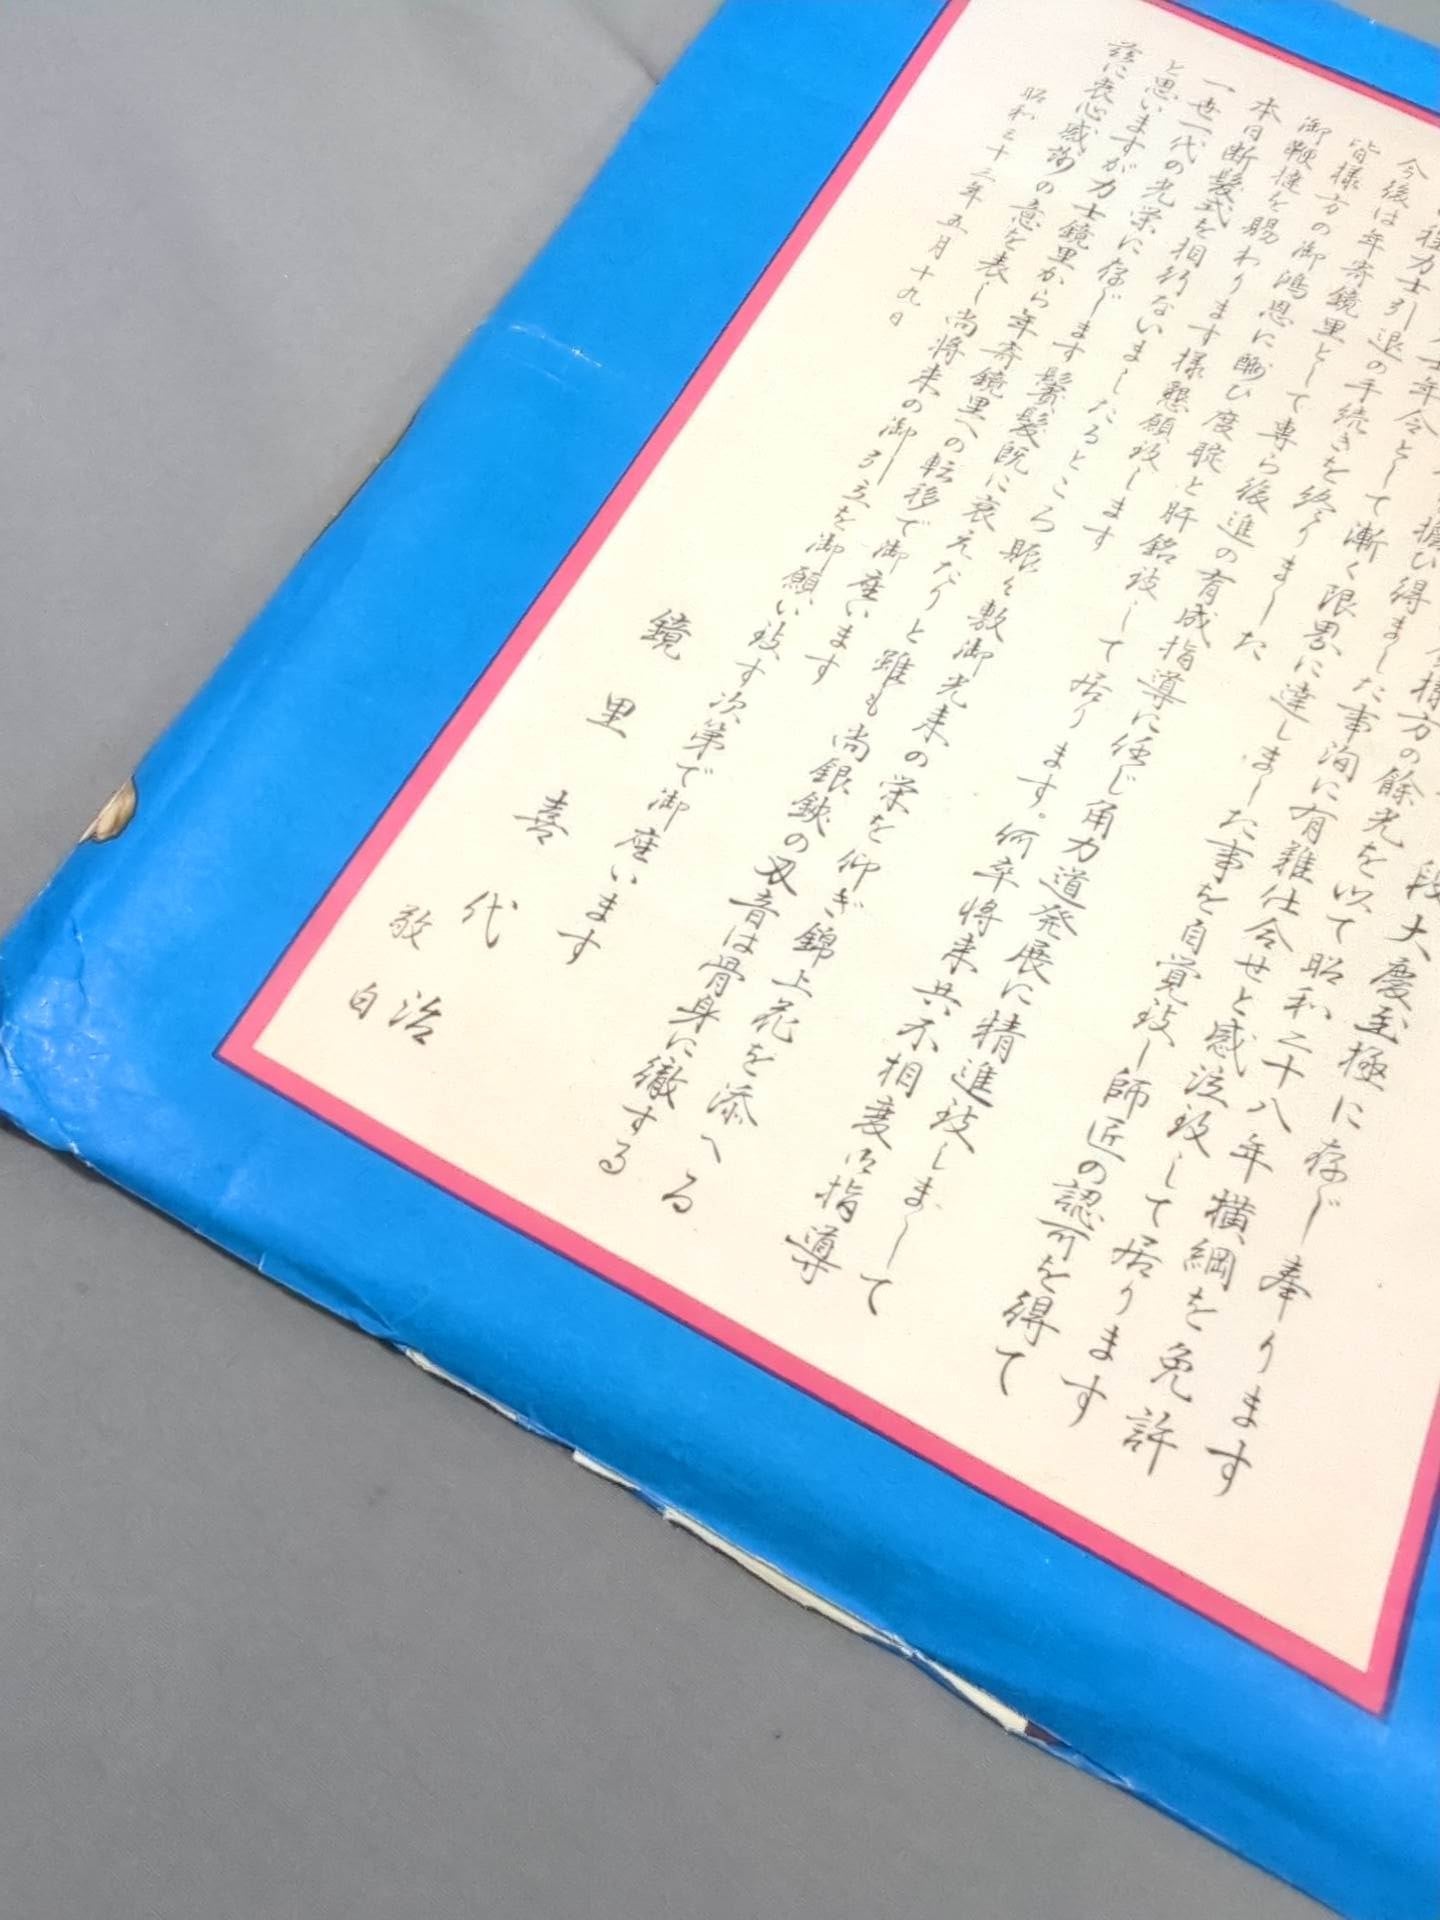 段大慶至極に存じ奉ります
擔ひ得ました事洵に有難仕合せと感泣致して居ります
皆様方の餘光を以て昭和二十八年横綱を免許
年令として漸く限界に達しました事を自覚致し師匠の認可を得て
程力士引退の手続きを終りました
今後は年寄鏡里として専ら後進の育成指導に任じ角力道発展に精進致しまして
皆様方の御鴻恩に酬ひ度聢と肝銘致して居ります。何卒将来共不相変御指導
御鞭撻を賜わります様懇願致します
本日断髪式を相行ないましたるところ賑々敷御光来の栄を仰ぎ錦上花を添へる
一世一代の光栄に存じます鬢髪既に衰えたりと雖も尚銀鋏の刃音は骨身に徹する
と思いますが力士鏡里から年寄鏡里への転移で御座います
茲に衷心感謝の意を表し尚将来の御引立を御願い致す次第で御座います
昭和三十三年五月十九日
鏡里喜代治
敬白